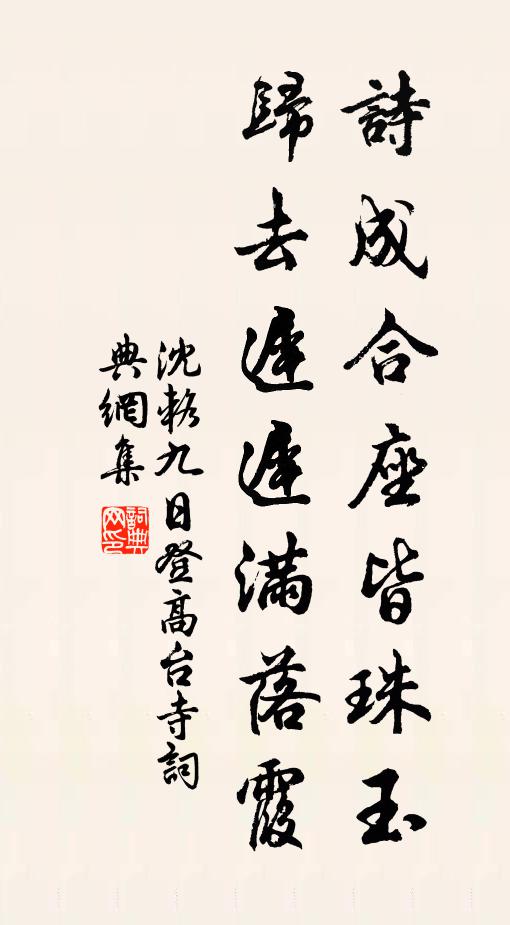 詩成合座皆珠玉
歸去遲遲滿落霞
沈輅九日登高台寺詞
典網集
詞典
网印